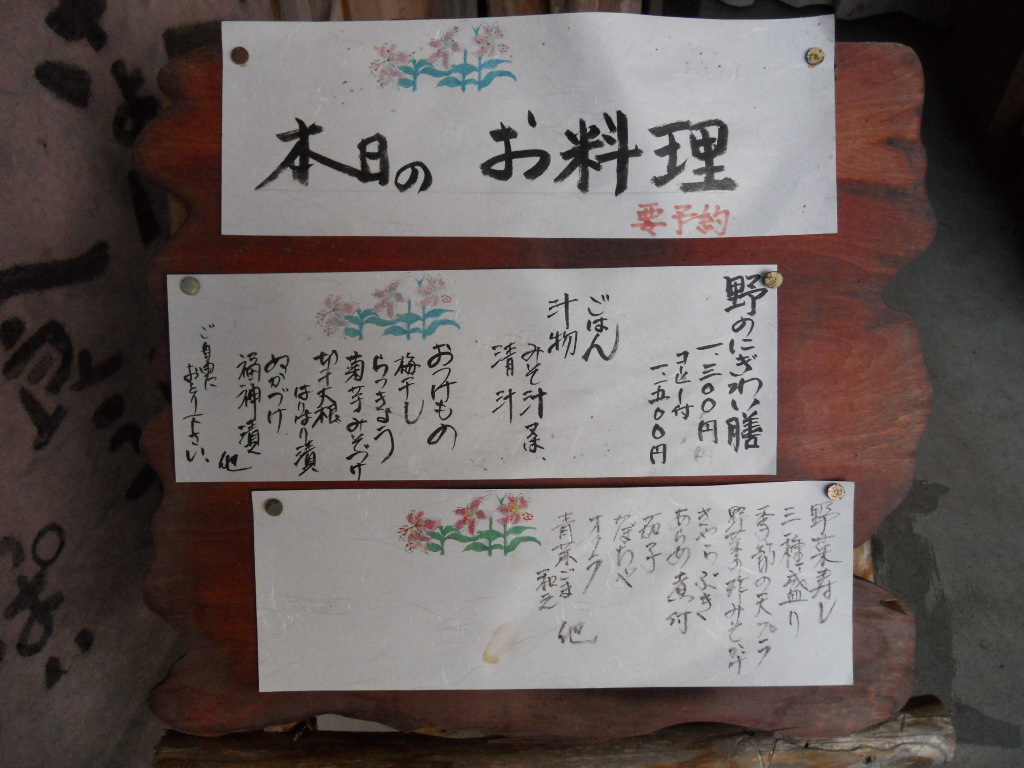 本日の お料理
要予約
野のにぎわい膳
一、三〇〇円
コーヒー付
一、五〇〇円
ごはん
汁物
みそ汁又は、
清汁
おつけもの
梅干し
らっきょう
菊芋みそづけ
切干大根
はりはり漬
ぬかづけ
福神漬 他
ご自由に
おとり下さい。
野菜寿し
三種盛り
季節の天プラ
野菜の酢みそ かけ
きゃらぶき
あらめ煮付
茄子
かぼちゃ
オクラ
青菜ごま
和え 他